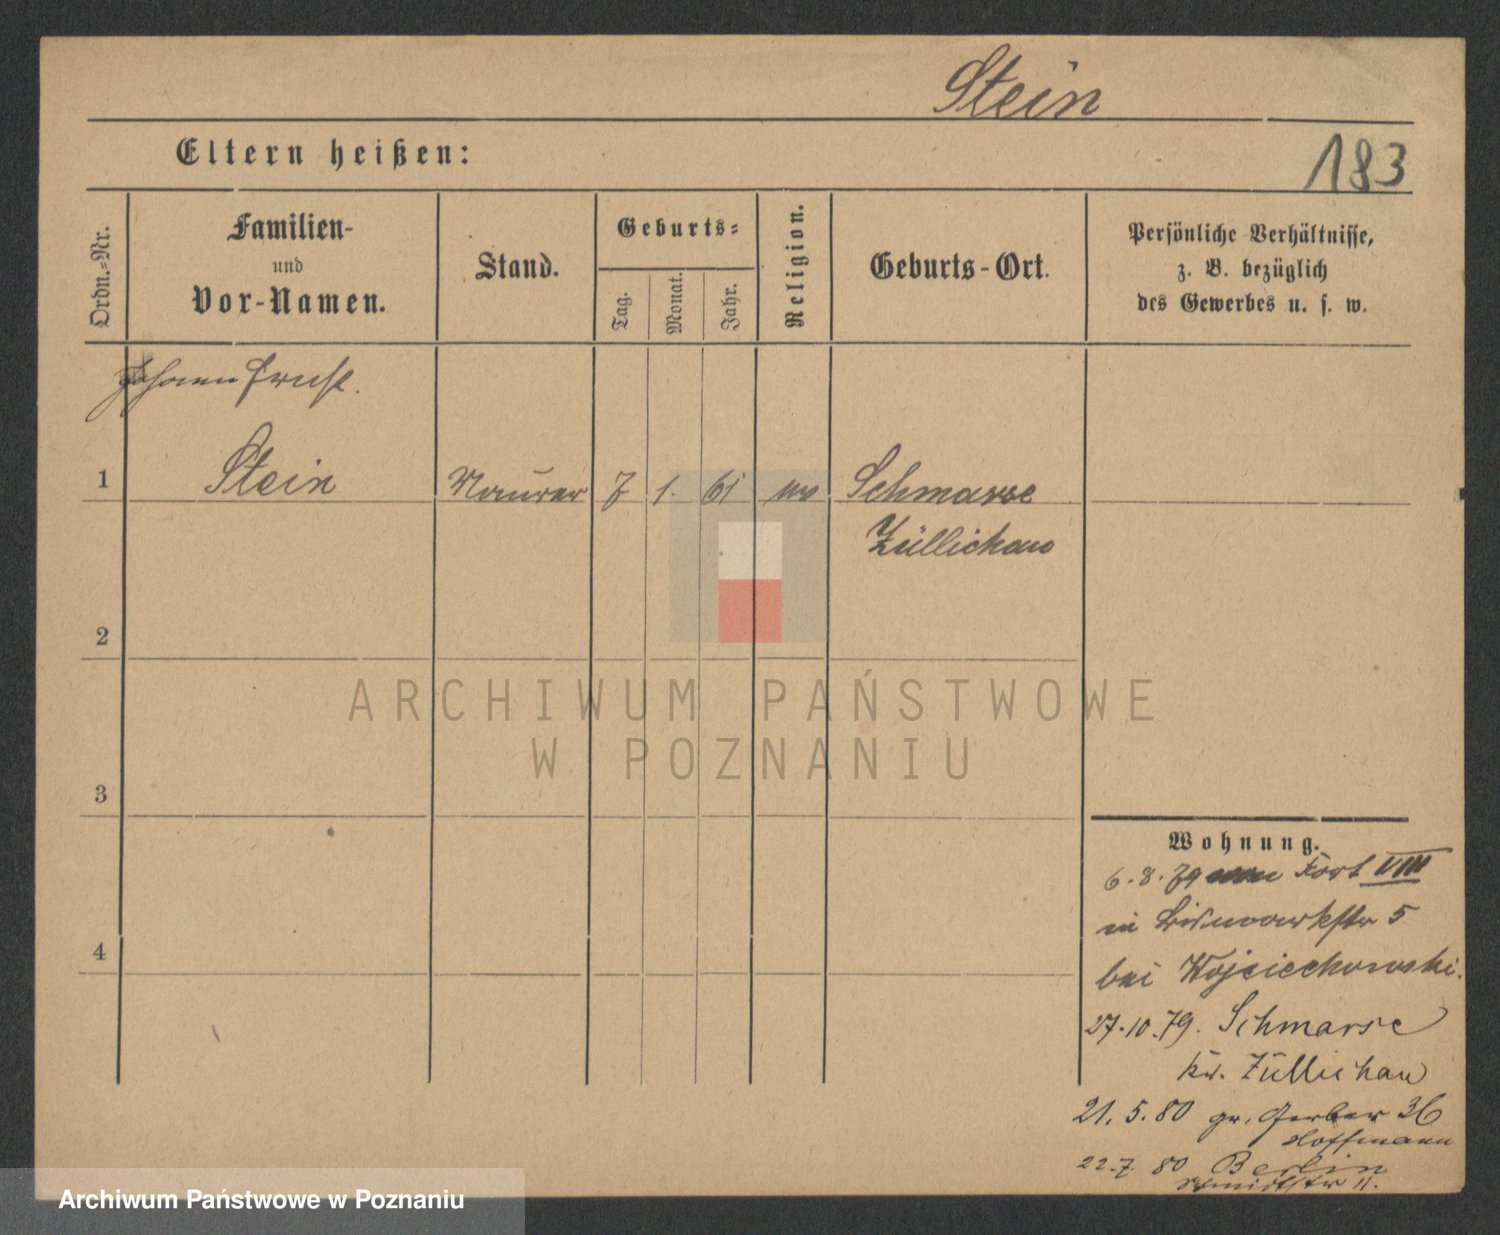 Stein
Eltern heißen:
183
Ordn.-Nr.
Familien-
und
Vor-Namen.
Stand.
Geburts-
Tag.
Monat.
Jahr.
Religion.
Geburts-Ort.
Persönliche Verhältnisse,
z. B. bezüglich
des Gewerbes u. s. w.
Johann Ernst.
1 Stein Maurer 7 1. 61 ev Schmarse
Züllichau
2
3
4
Wohnung.
6.8.79 Fort VIII
in Bismarkstr 5
bei Wojciechowski.
27.10.79. Schmarse
Kr. Züllichau
21.5.80 gr. Gerber 36
Hoffmann
22.7.80 Berlin
11.
ARCHIWUM PAŃSTWOWE
W POZNANIU
Archiwum Państwowe w Poznaniu